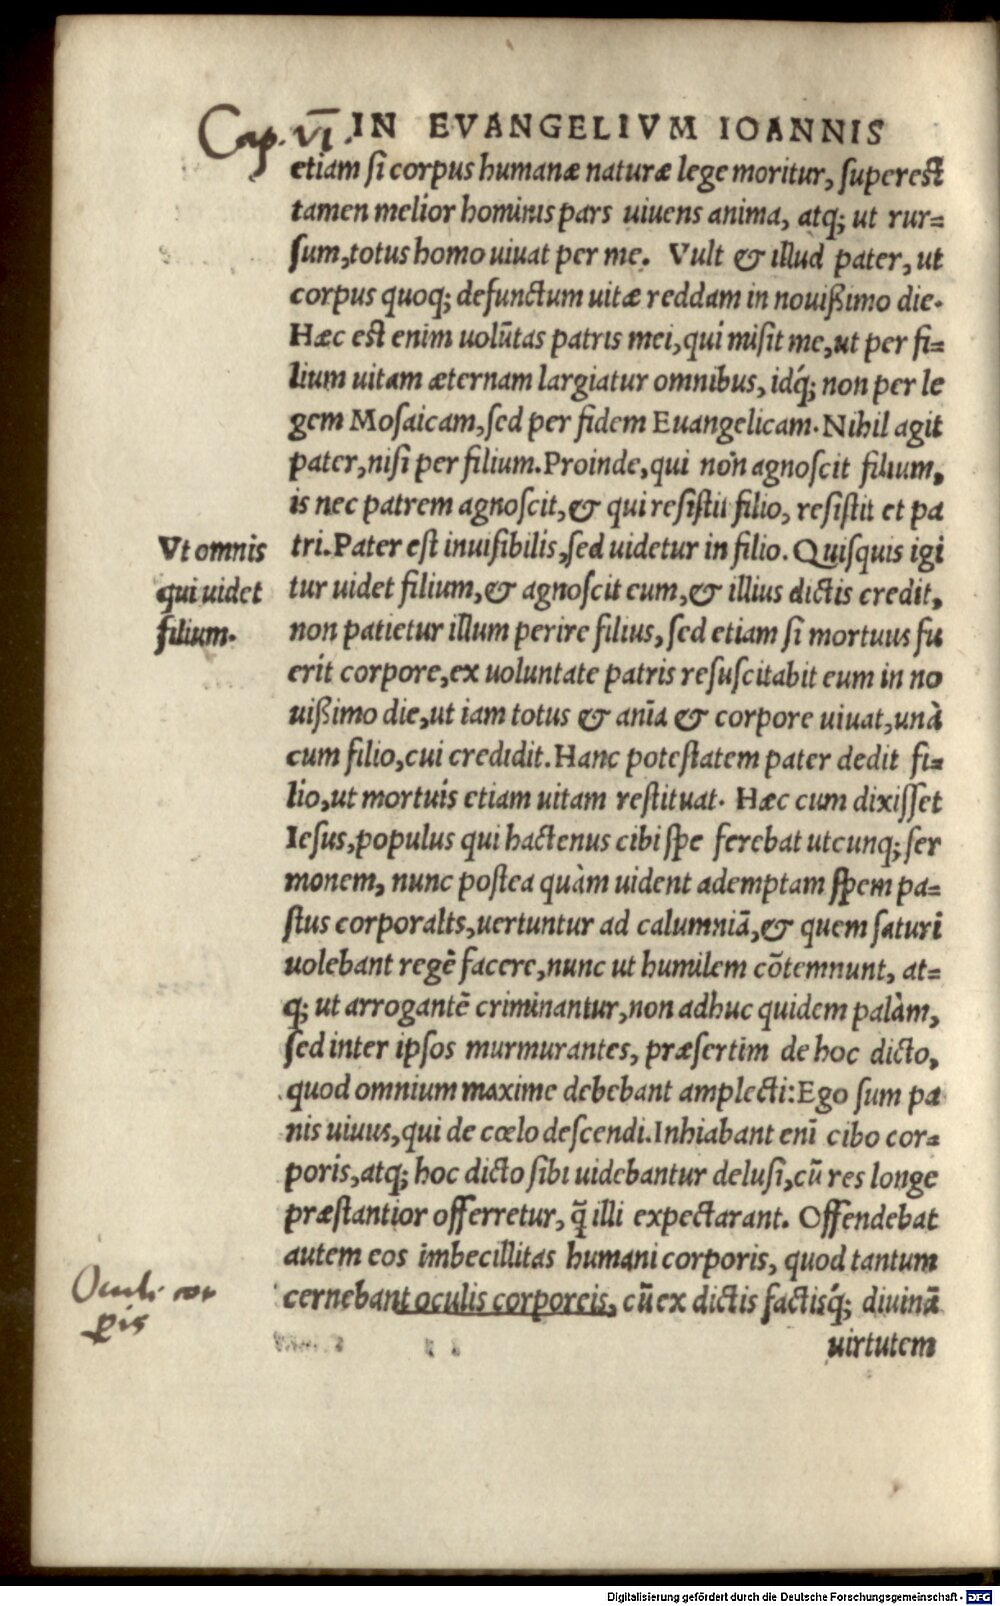 Cap. VI. IN EVANGELIVM IOANNIS
etiam si corpus humanæ naturæ lege moritur, superest
tamen melior hominis pars uiuens anima, atq; ut rur=
sum, totus homo uiuat per me. Vult & illud pater, ut
corpus quoq; defunctum uitæ reddam in nouißimo die.
Hæc est enim uolūtas patris mei, qui misit me, ut per fi=
lium uitam æternam largiatur omnibus, idq́; non per le
gem Mosaicam, sed per fidem Euangelicam. Nihil agit
pater, nisi per filium. Proinde, qui non agnoscit filium,
is nec patrem agnoscit, & qui resistit filio, resistit et pa
tri. Pater est inuisibilis, sed uidetur in filio. Quisquis igi
tur uidet filium, & agnoscit eum, & illius dictis credit,
non patietur illum perire filius, sed etiam si mortuus fu
erit corpore, ex uoluntate patris resuscitabit eum in no
uißimo die, ut iam totus & anīa & corpore uiuat, unà
cum filio, cui credidit. Hanc potestatem pater dedit fi=
lio, ut mortuis etiam uitam restituat. Hæc cum dixisset
Iesus, populus qui hactenus cibi spe ferebat utcunq; ser
monem, nunc postea quàm uident ademptam spem pa=
stus corporalis, uertuntur ad calumniā, & quem saturi
uolebant regē facere, nunc ut humilem cōtemnunt, at=
q; ut arrogantē criminantur, non adhuc quidem palàm,
sed inter ipsos murmurantes, præsertim de hoc dicto,
quod omnium maxime debebant amplecti: Ego sum pa
nis uiuus, qui de cœlo descendi. Inhiabant enī cibo cor=
poris, atq; hoc dicto sibi uidebantur delusi, cū res longe
præstantior offerretur, q̃ illi expectarant. Offendebat
autem eos imbecillitas humani corporis, quod tantum
cernebant oculis corporeis, cū ex dictis factisq́; diuinā
uirtutem
Vt omnis
qui uidet
filium.
Oculi cor
pis
Digitalisierung gefördert durch die Deutsche Forschungsgemeinschaft - DFG